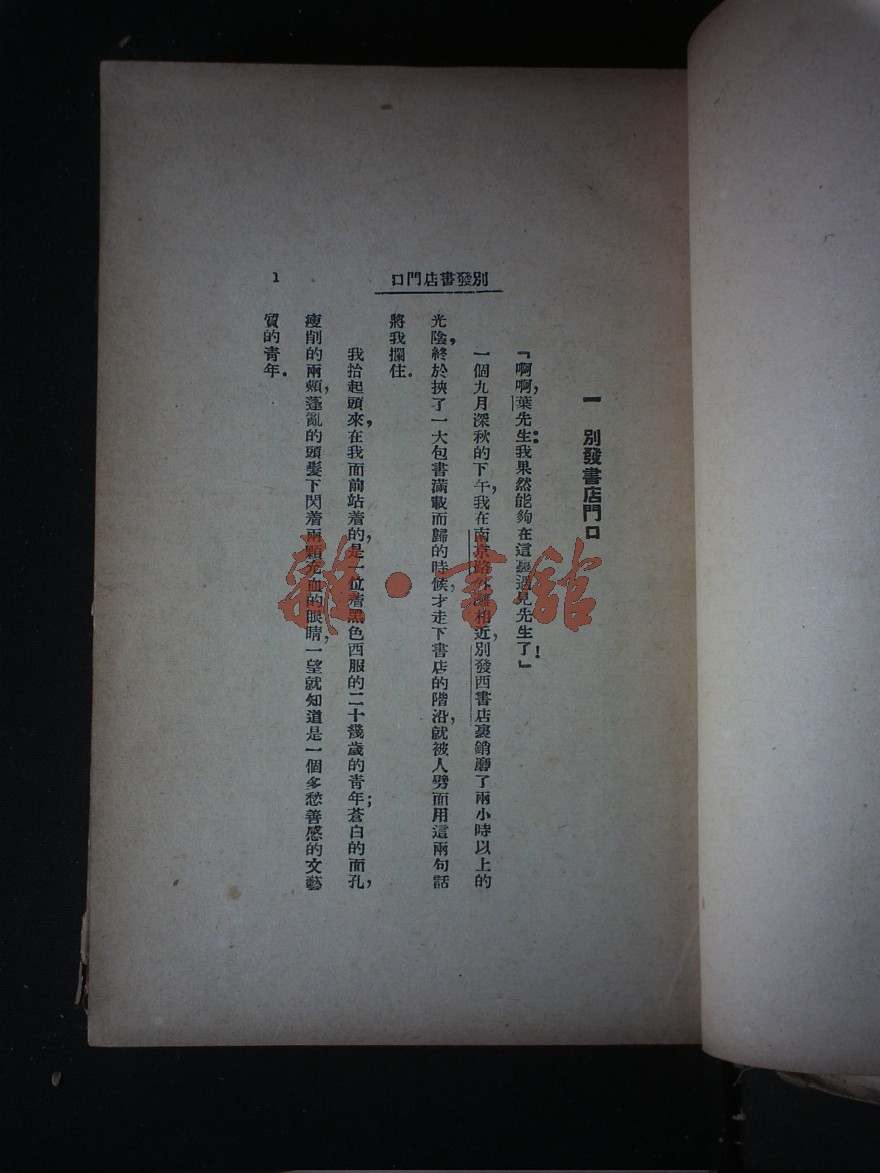 別發書店門口
1
一 別發書店門口
「啊啊,葉先生:我果然能夠在這裏遇見先生了!」
一個九月深秋的下午,我在南京路外灘相近,別發西書店裏銷磨了兩小時以上的
光陰,終於挾了一大包書滿載而歸的時候,才走下書店的階沿,就被人劈面用這兩句話
將我攔住.
我抬起頭來,在我面前站着的,是一位着黑色西服的二十幾歲的青年;蒼白的面孔,
瘦削的兩頰,蓬亂的頭髮下閃着兩顆充血的眼睛,一望就知道是一個多愁善感的文藝
質的青年.
雜·書館